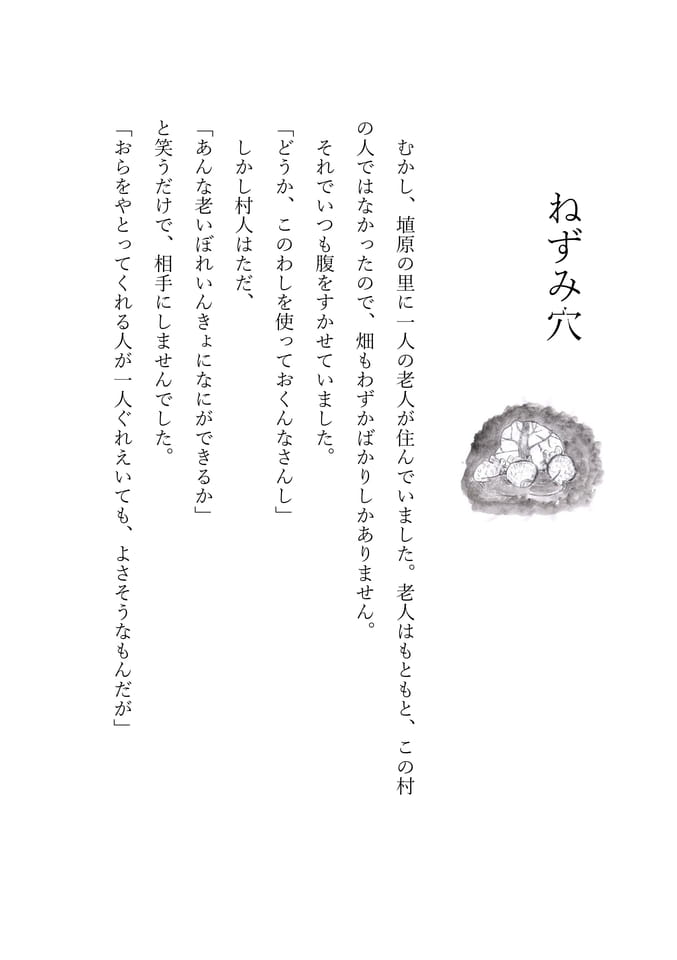 ねずみ穴
むかし、埴原の里に一人の老人が住んでいました。老人はもともと、この村
の人ではなかったので、畑もわずかばかりしかありません。
それでいつも腹をすかせていました。
「どうか、このわしを使っておくんなさんし」
しかし村人はただ、
「あんな老いぼれいんきょになにができるか」
と笑うだけで、相手にしませんでした。
「おらをやとってくれる人が一人ぐれえいても、よさそうなもんだが」